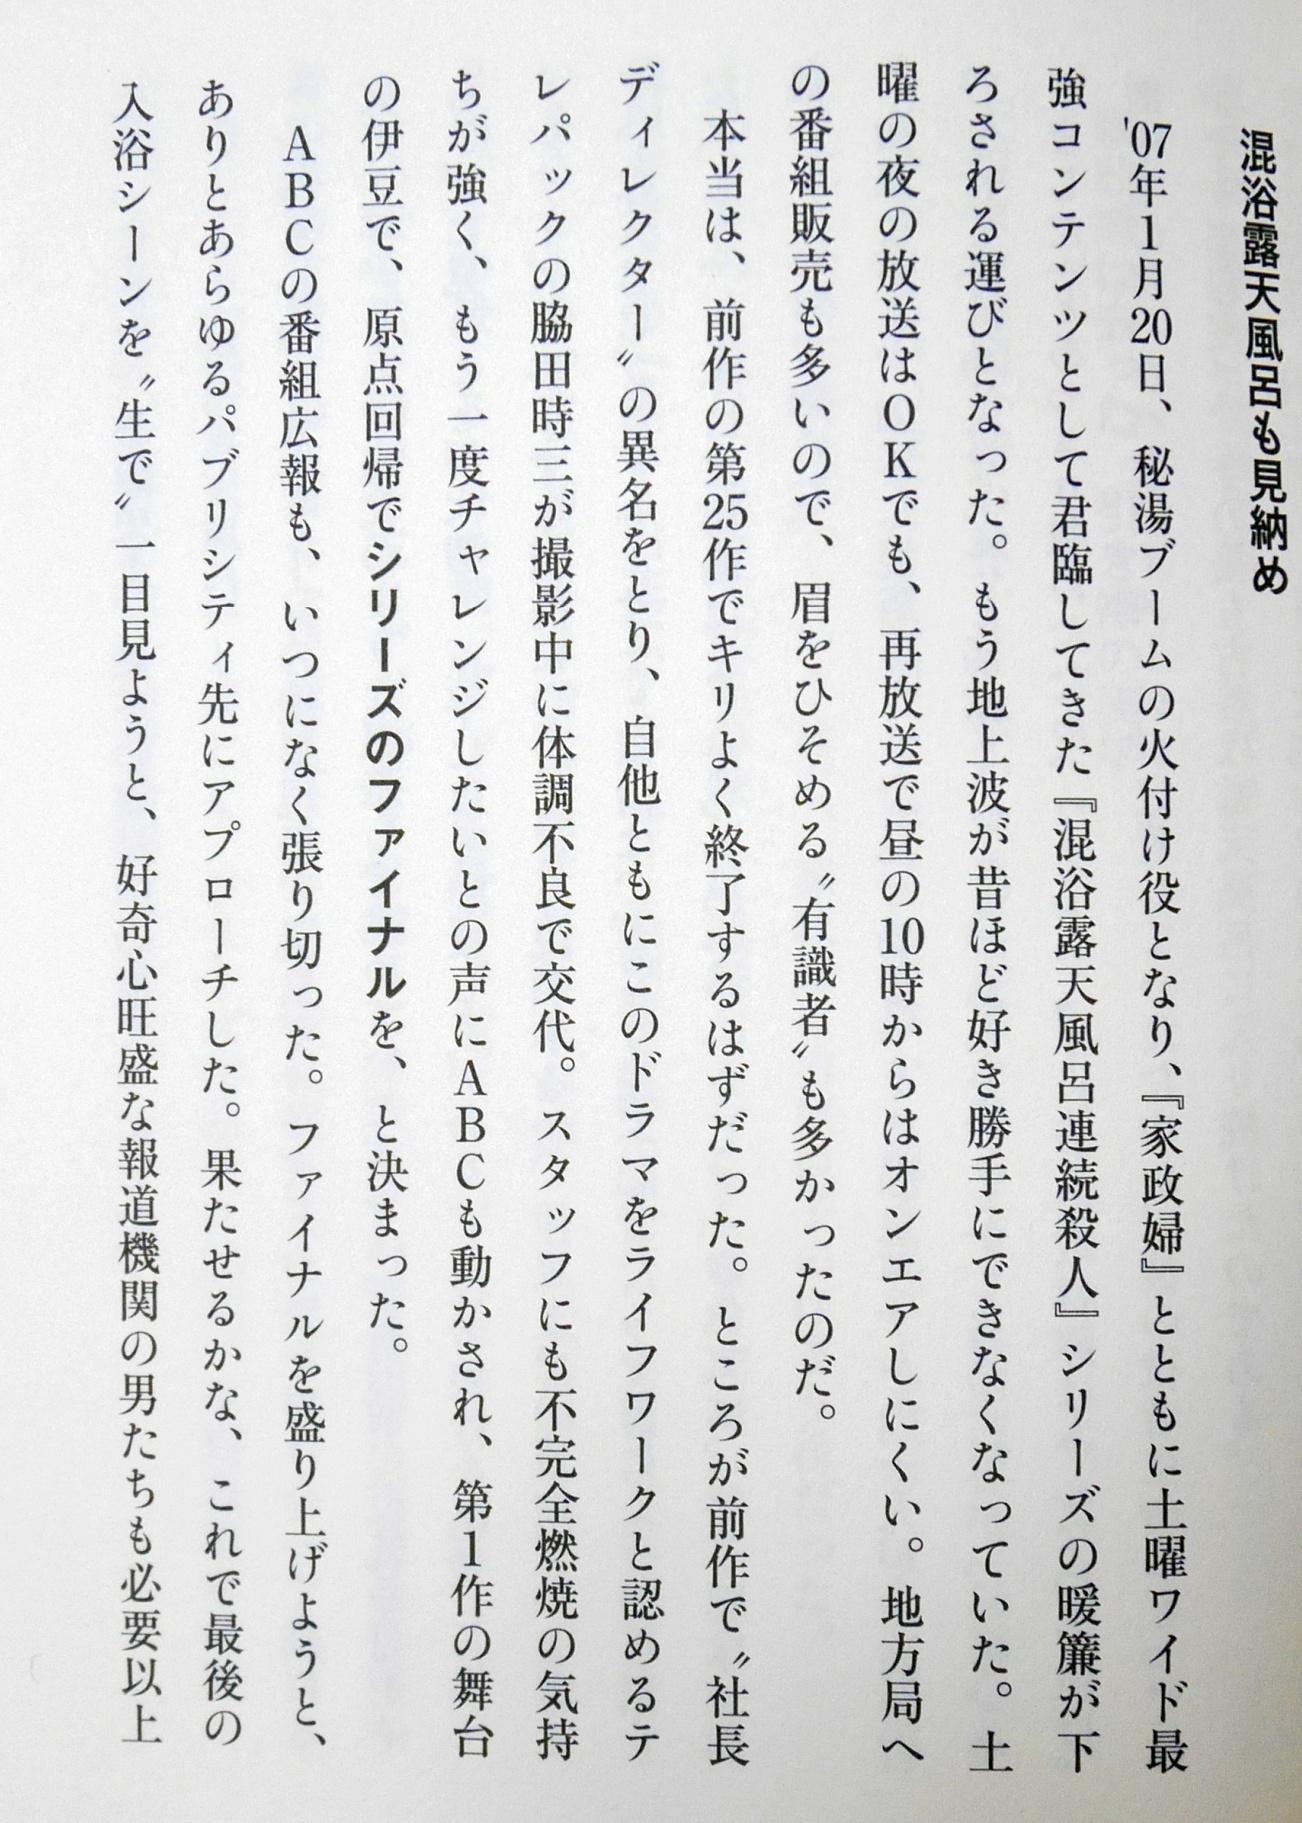 混浴露天風呂も見納め
'07年1月20日、秘湯ブームの火付け役となり、『家政婦』とともに土曜ワイド最
強コンテンツとして君臨してきた『混浴露天風呂連続殺人』シリーズの暖簾が下
ろされる運びとなった。もう地上波が昔ほど好き勝手にできなくなっていた。土
曜の夜の放送はOKでも、再放送で昼の10時からはオンエアしにくい。地方局へ
の番組販売も多いので、眉をひそめる〝有識者〟も多かったのだ。
本当は、前作の第25作でキリよく終了するはずだった。ところが前作で〝社長
ディレクター〟の異名をとり、自他ともにこのドラマをライフワークと認めるテ
レパックの脇田時三が撮影中に体調不良で交代。スタッフにも不完全燃焼の気持
ちが強く、もう一度チャレンジしたいとの声にABCも動かされ、第1作の舞台
の伊豆で、原点回帰でシリーズのファイナルを、と決まった。
ABCの番組広報も、いつになく張り切った。ファイナルを盛り上げようと、
ありとあらゆるパブリシティ先にアプローチした。果たせるかな、これで最後の
入浴シーンを〝生で〟一目見ようと、好奇心旺盛な報道機関の男たちも必要以上